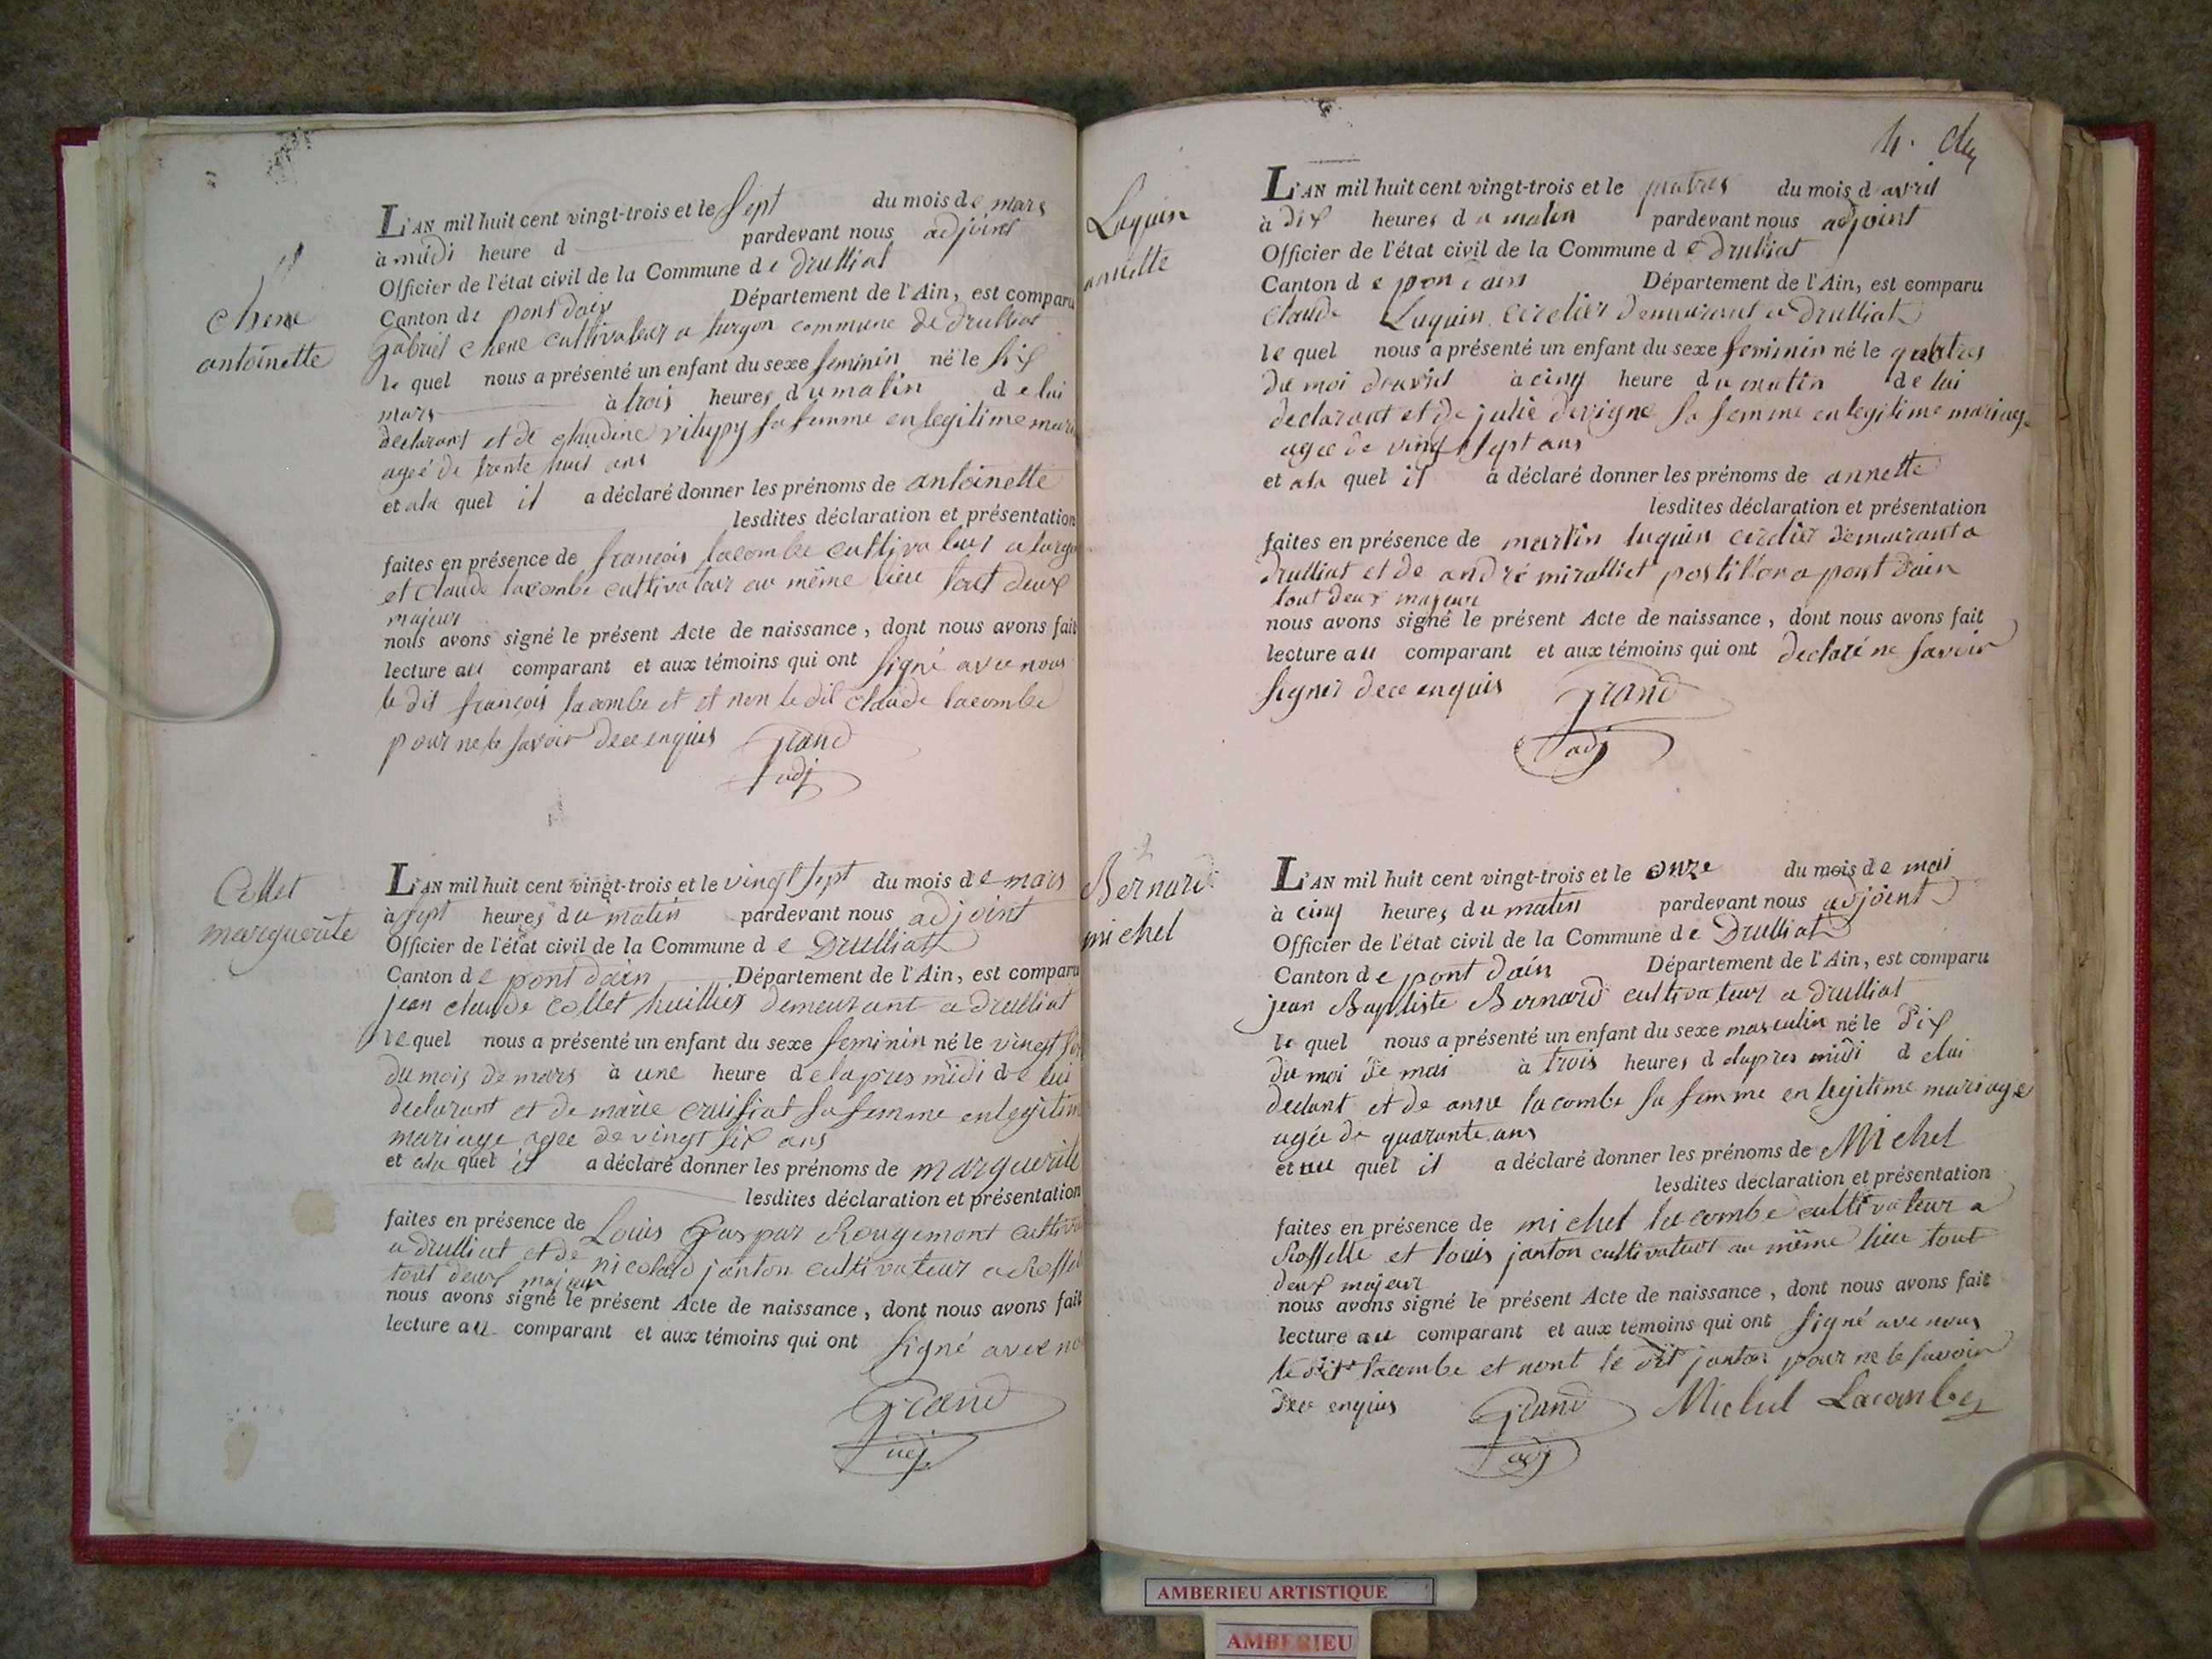 chene
antoinette
L'AN mil huit cent vingt-trois et le sept du mois de mars
à midi heure d pardevant nous adjoint
Officier de l'état civil de la Commune de druilliat
Canton de pont dain Département de l'Ain, est comparu
gabriel chene cultivateur a turgon commune de druilliat
le quel nous a présenté un enfant du sexe feminin né le six
mars à trois heures du matin de lui
declarant et de claudine vitupy sa femme en legitime mari
ageé de trente huit ans
et ala quel il a déclaré donner les prénoms de antoinette
lesdites déclaration et présentation
faites en présence de françois lacombe cultivateur a turgo
et claude lacombe cultivateur au même lieu tout deux
majeur
nous avons signé le présent Acte de naissance, dont nous avons fait
lecture au comparant et aux témoins qui ont signé avec nous
le dit françois lacombe et et non le dit claude lacombe
pour ne le savoir dece enquis Grand
adj
Collet
marguerite
L'AN mil huit cent vingt-trois et le vingt sept du mois de mars
à sept heures du matin pardevant nous adjoint
Officier de l'état civil de la Commune de Druilliat
Canton de pont dain Département de l'Ain, est comparu
jean claude collet huillier demeurant a druilliat
le quel nous a présenté un enfant du sexe feminin né le vingt six
du mois de mars à une heure de lapres midi de lui
declarant et de marie cruisiat sa femme en legitim
mariage agee de vingt six ans
et ala quel il a déclaré donner les prénoms de marguerite
lesdites déclaration et présentation
faites en présence de Louis Gaspar Rougemont cultiva
a druilliat et de nicolas janton cultivateur a Rossel
tout deux majeur
nous avons signé le présent Acte de naissance, dont nous avons fait
lecture au comparant et aux témoins qui ont signé avec no
Grand
adj
4.
Luquin
annette
L'AN mil huit cent vingt-trois et le quatres du mois d avril
à dix heures du matin pardevant nous adjoint
Officier de l'état civil de la Commune de druilliat
Canton de pon dain Département de l'Ain, est comparu
Claude Luquin cirdier demeurant a druilliat
le quel nous a présenté un enfant du sexe feminin né le quatres
du moi d'avril à cinq heure du matin de lui
declarant et de julie devigne sa femme en legitime mariage
agee de vingt sept ans
et ala quel il a déclaré donner les prénoms de annette
lesdites déclaration et présentation
faites en présence de martin luquin cirdier demeurant a
druilliat et de andré miralliet postillon a pont dain
tout deux majeur
nous avons signé le présent Acte de naissance, dont nous avons fait
lecture au comparant et aux témoins qui ont declaré ne savoir
signer dece enquis Grand
adj
Bernard
michel
L'AN mil huit cent vingt-trois et le onze du mois de mai
à cinq heures du matin pardevant nous adjoint
Officier de l'état civil de la Commune de Druilliat
Canton de pont dain Département de l'Ain, est comparu
jean Baptiste Bernard cultivateur a druilliat
le quel nous a présenté un enfant du sexe masculin né le dix
du moi de mai à trois heures d elapres midi d elui
declant et de anne lacombe sa femme en legitime mariage
agée de quarante ans
et au quel il a déclaré donner les prénoms de Michel
lesdites déclaration et présentation
faites en présence de michel lacombe cultivateur a
Rosselle et louis janton cultivateur au même lieu tout
deux majeur
nous avons signé le présent Acte de naissance, dont nous avons fait
lecture au comparant et aux témoins qui ont signé ave nous
le dit lacombe et nont le dit janton pour ne le savoir
dece enquis Grand Michel Lacombe
adj
AMBERIEU ARTISTIQUE
AMBERIEU